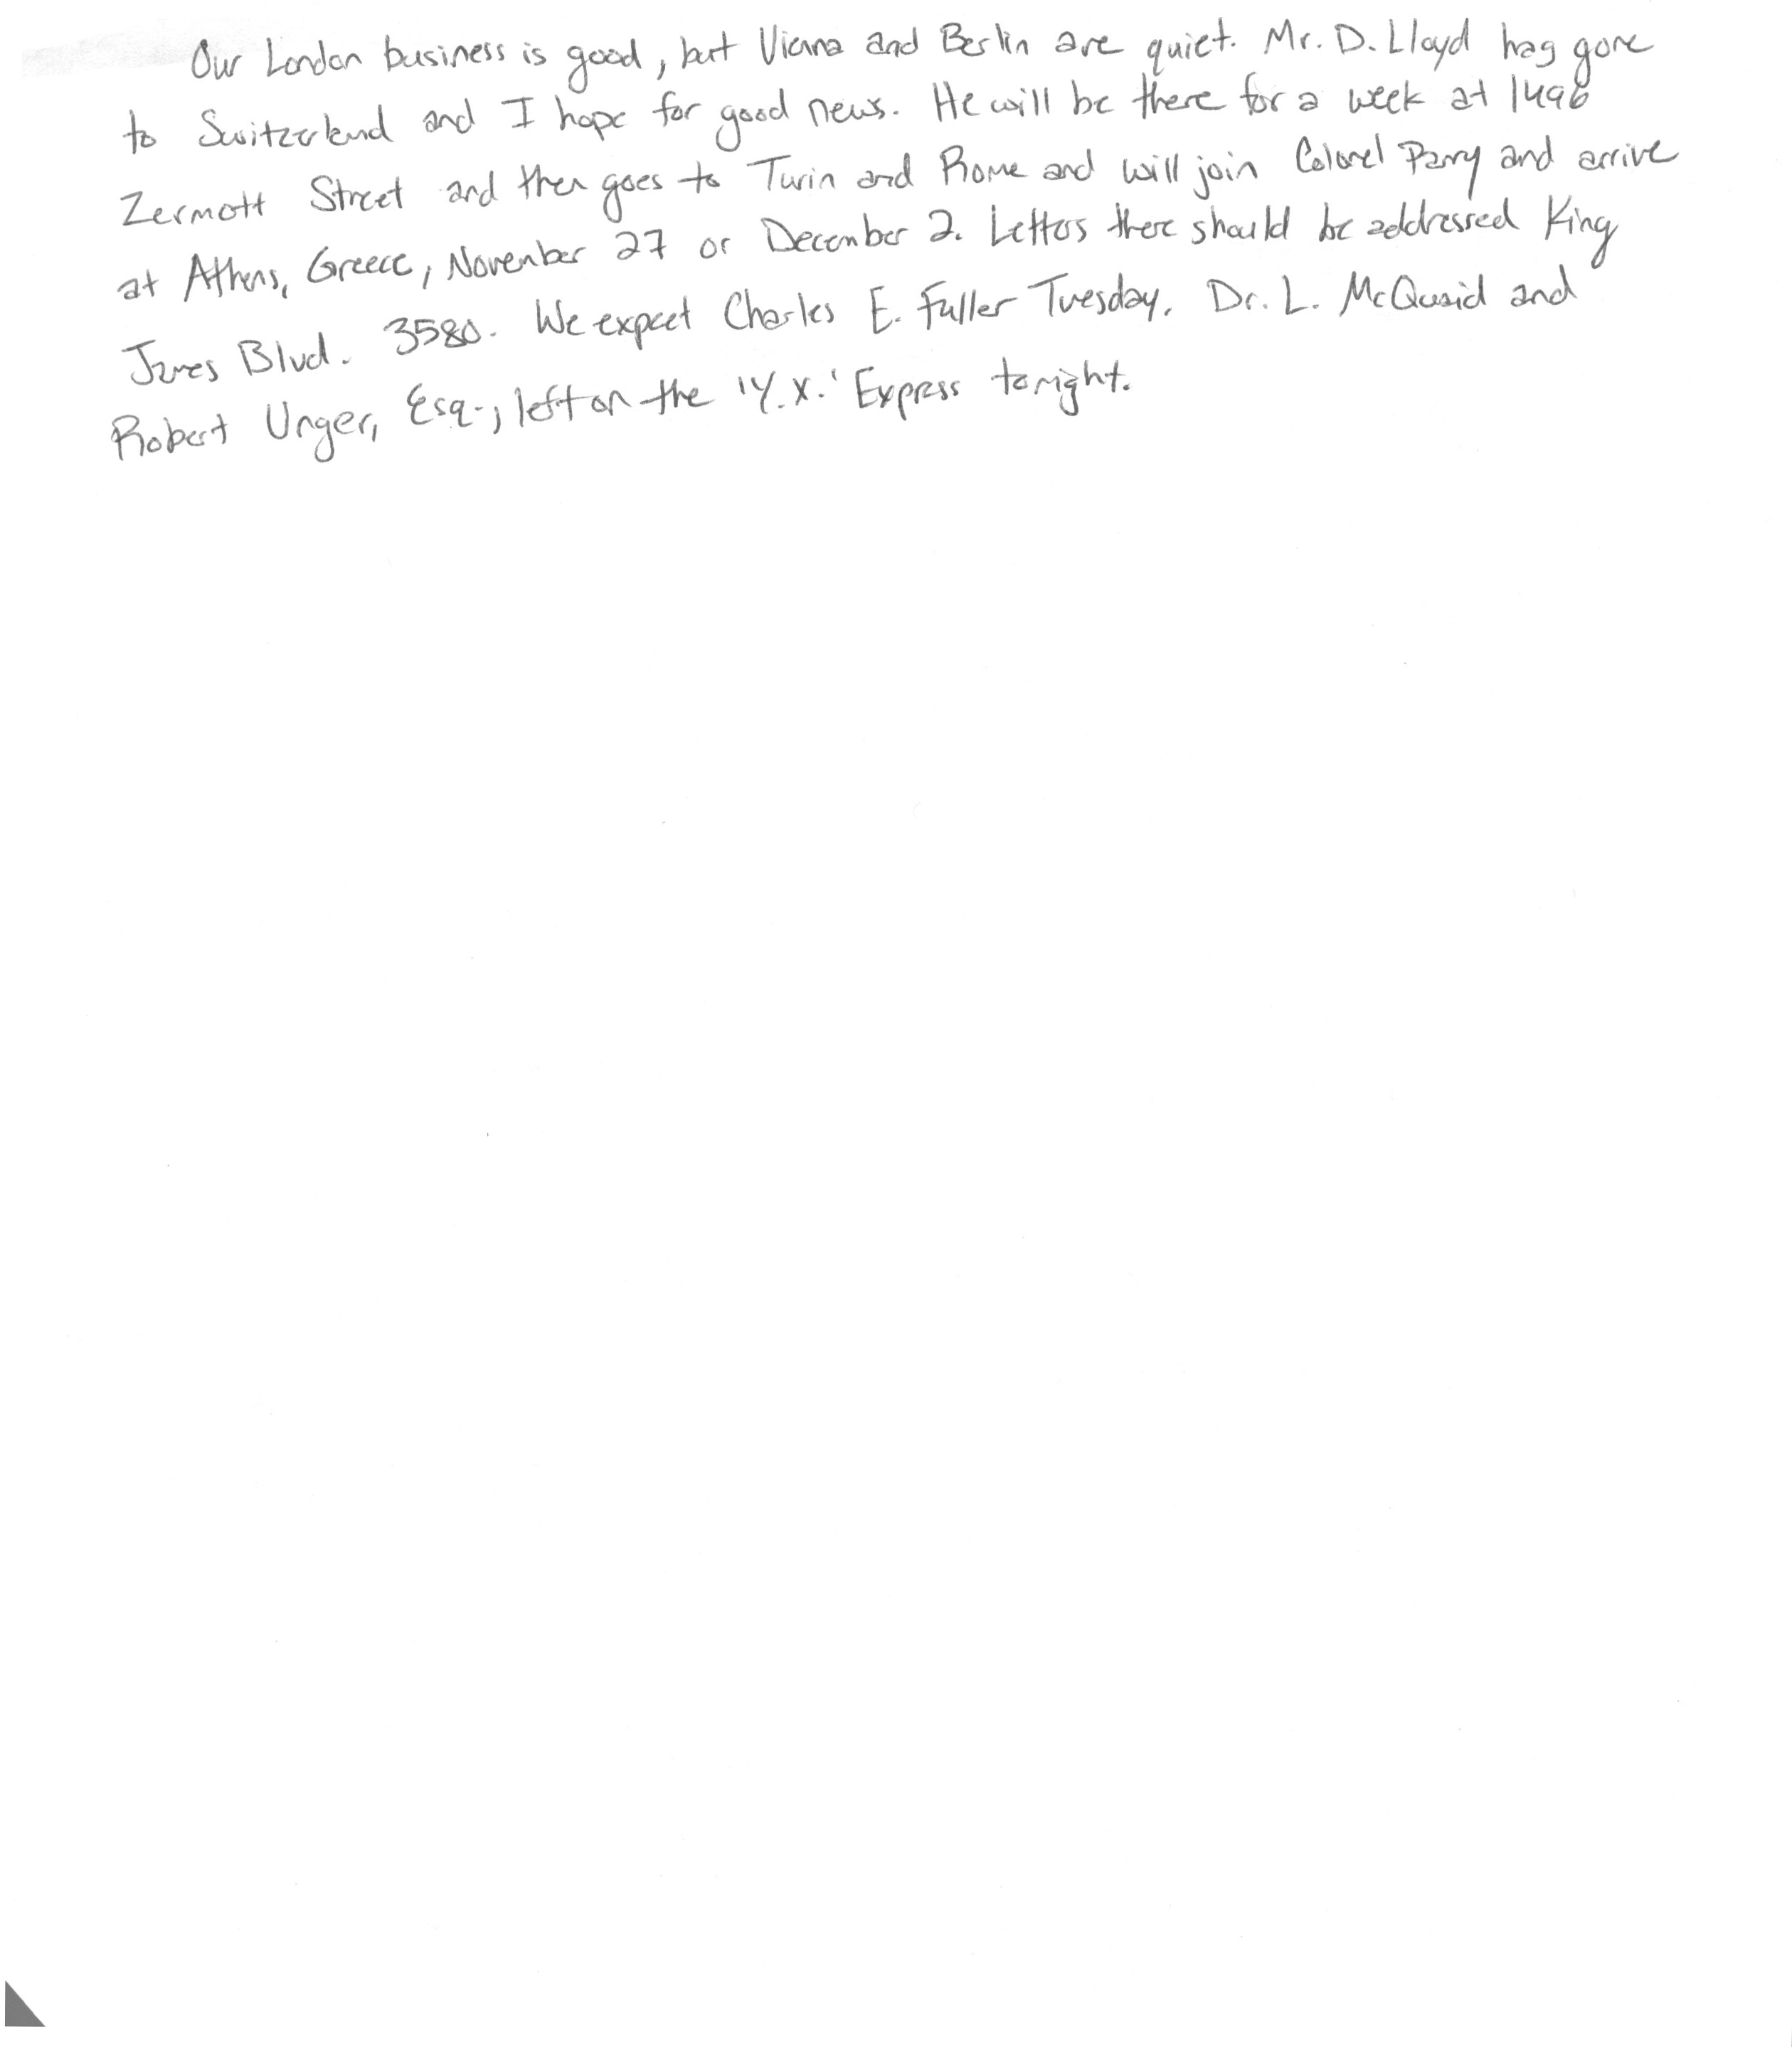 Our London business is good, but Vienna and Berlin are quiet. Mr. D. Lloyd has gone
to Switzerland and I hope for good news. He will be there for a week at 1496
Zermott Street and then goes to Turin and Rome and will join Colonel Parry and arrive
at Athens, Greece, November 27 or December 2. Letters there should be addressed King
James Blvd. 3580. We expect Charles E. Fuller Tuesday. Dr. L. McQuaid and
Robert Unger, Esq., left on the 'Y.X.' Express tonight.